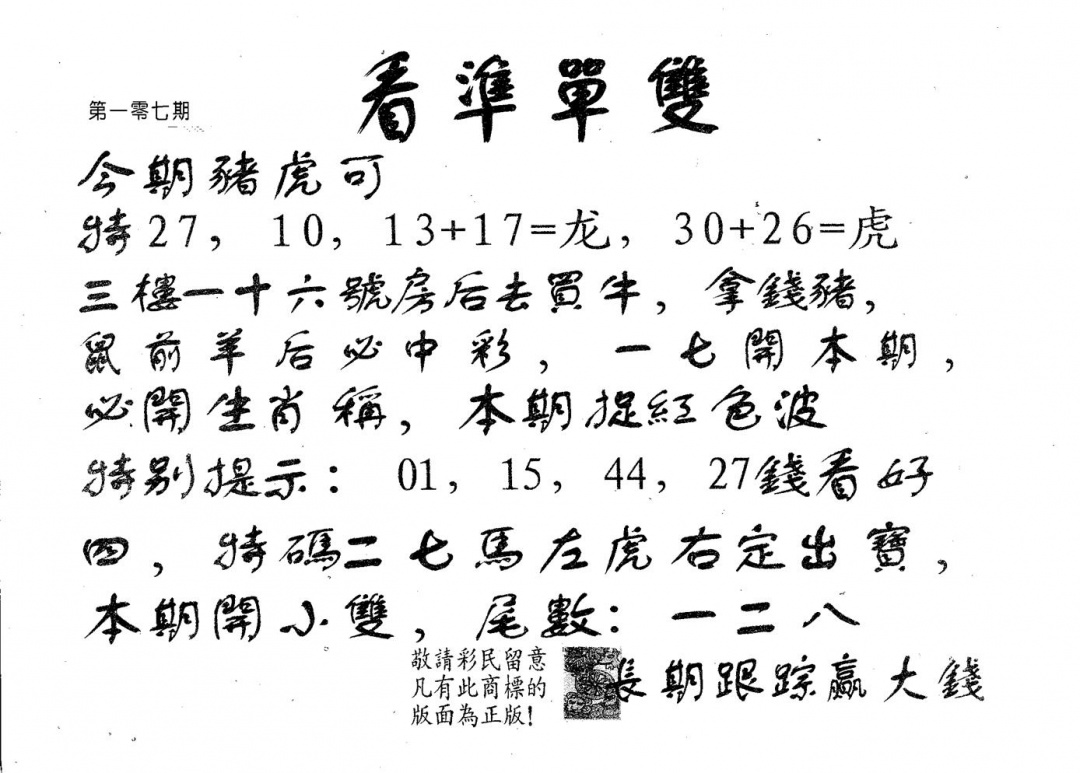 第一零七期
看準單雙
今期豬虎可
特27，10，13+17=龙，30+26=虎
三樓一十六號房后去買牛，拿錢豬，
鼠前羊后必中彩，一七開本期，
必開生肖稱，本期捉紅色波
特别提示：01，15，44，27錢看好
四，特碼二七馬左虎右定出寶，
本期開小雙，尾數：一二八
敬請彩民留意
凡有此商標的
版面為正版！
長期跟踪赢大錢